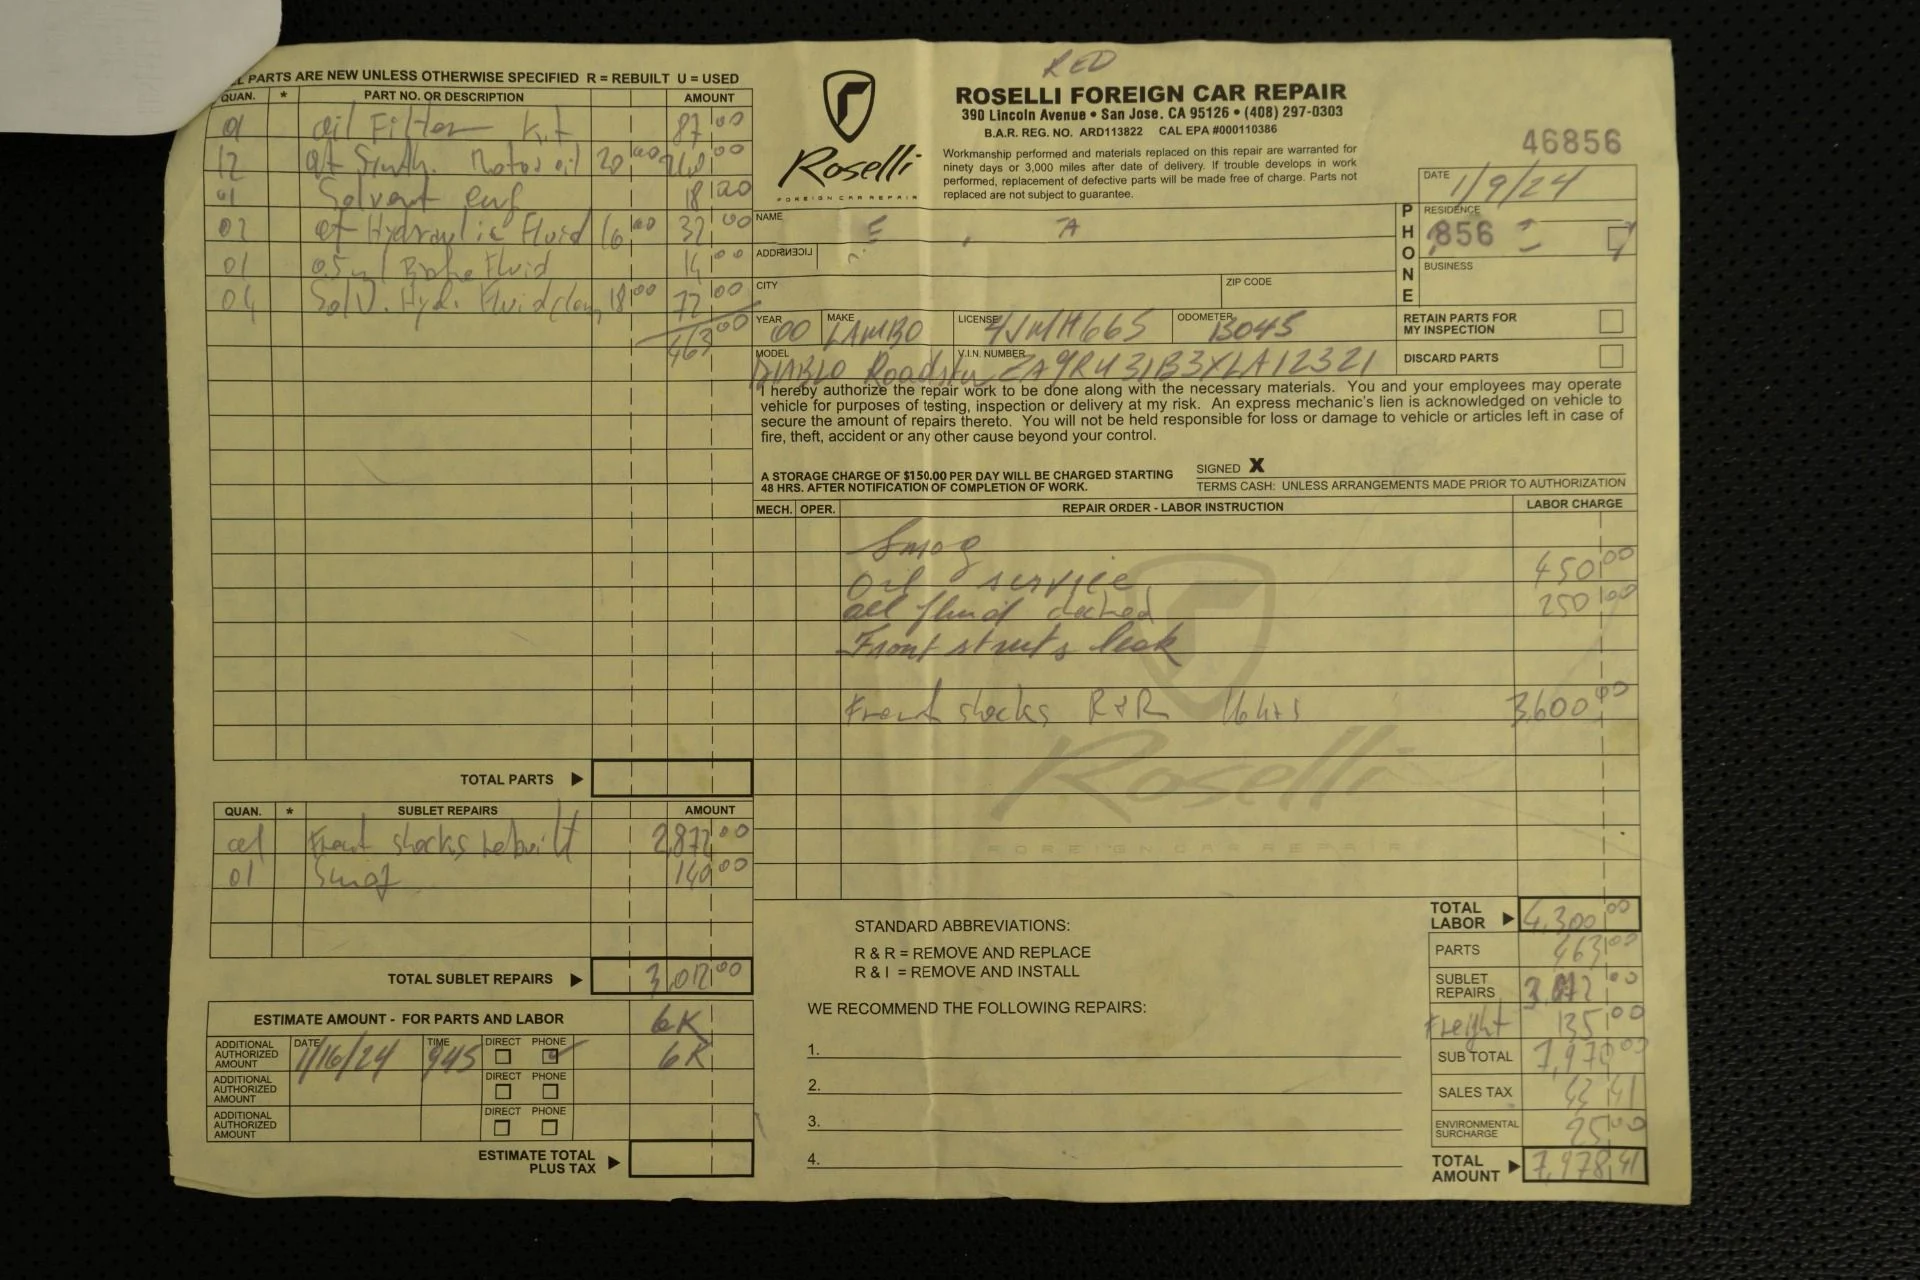 RED
ALL PARTS ARE NEW UNLESS OTHERWISE SPECIFIED R = REBUILT U = USED
QUAN. * PART NO. OR DESCRIPTION AMOUNT
01 oil Filter Kit 87.00
12 qt Synth. Motor oil 20.00 240.00
01 Solvent 18.00
02 qt Hydraulic Fluid 16.00 32.00
01 0.5 Brake Fluid 14.00
04 Solv. Hyd. Fluid clean 18.00 72.00
463.00
TOTAL PARTS
QUAN. * SUBLET REPAIRS AMOUNT
Front shocks rebuilt 2,872.00
01 Smog 140.00
TOTAL SUBLET REPAIRS 3,012.00
ESTIMATE AMOUNT - FOR PARTS AND LABOR 6K
ADDITIONAL AUTHORIZED AMOUNT DATE 1/16/24 TIME 945 DIRECT PHONE 6K
ADDITIONAL AUTHORIZED AMOUNT DIRECT PHONE
ADDITIONAL AUTHORIZED AMOUNT DIRECT PHONE
ESTIMATE TOTAL PLUS TAX
Roselli
FOREIGN CAR REPAIR
ROSELLI FOREIGN CAR REPAIR
390 Lincoln Avenue • San Jose, CA 95126 • (408) 297-0303
B.A.R. REG. NO. ARD113822 CAL EPA #000110386
Workmanship performed and materials replaced on this repair are warranted for
ninety days or 3,000 miles after date of delivery. If trouble develops in work
performed, replacement of defective parts will be made free of charge. Parts not
replaced are not subject to guarantee.
46856
DATE 1/9/24
NAME E , A
PHONE RESIDENCE 856
ADDR
BUSINESS
CITY ZIP CODE
YEAR 00 MAKE LAMBO LICENSE 4JMH665 ODOMETER 13045
RETAIN PARTS FOR MY INSPECTION
MODEL DIABLO Roadster V.I.N. NUMBER ZA9RU31B3XLA12321
DISCARD PARTS
I hereby authorize the repair work to be done along with the necessary materials. You and your employees may operate
vehicle for purposes of testing, inspection or delivery at my risk. An express mechanic's lien is acknowledged on vehicle to
secure the amount of repairs thereto. You will not be held responsible for loss or damage to vehicle or articles left in case of
fire, theft, accident or any other cause beyond your control.
A STORAGE CHARGE OF $150.00 PER DAY WILL BE CHARGED STARTING
48 HRS. AFTER NOTIFICATION OF COMPLETION OF WORK.
SIGNED X
TERMS CASH: UNLESS ARRANGEMENTS MADE PRIOR TO AUTHORIZATION
MECH. OPER. REPAIR ORDER - LABOR INSTRUCTION LABOR CHARGE
Smog 450.00
Oil service 250.00
all fluid checked
Front struts leak
Front shocks R&R 16 hrs 3,600.00
Roselli
FOREIGN CAR REPAIR
STANDARD ABBREVIATIONS:
R & R = REMOVE AND REPLACE
R & I = REMOVE AND INSTALL
WE RECOMMEND THE FOLLOWING REPAIRS:
1.
2.
3.
4.
TOTAL LABOR 4,300.00
PARTS 463.00
SUBLET REPAIRS 3,012.00
Freight 135.00
SUB TOTAL 7,910.00
SALES TAX 43.41
ENVIRONMENTAL SURCHARGE 25.00
TOTAL AMOUNT 7,978.41